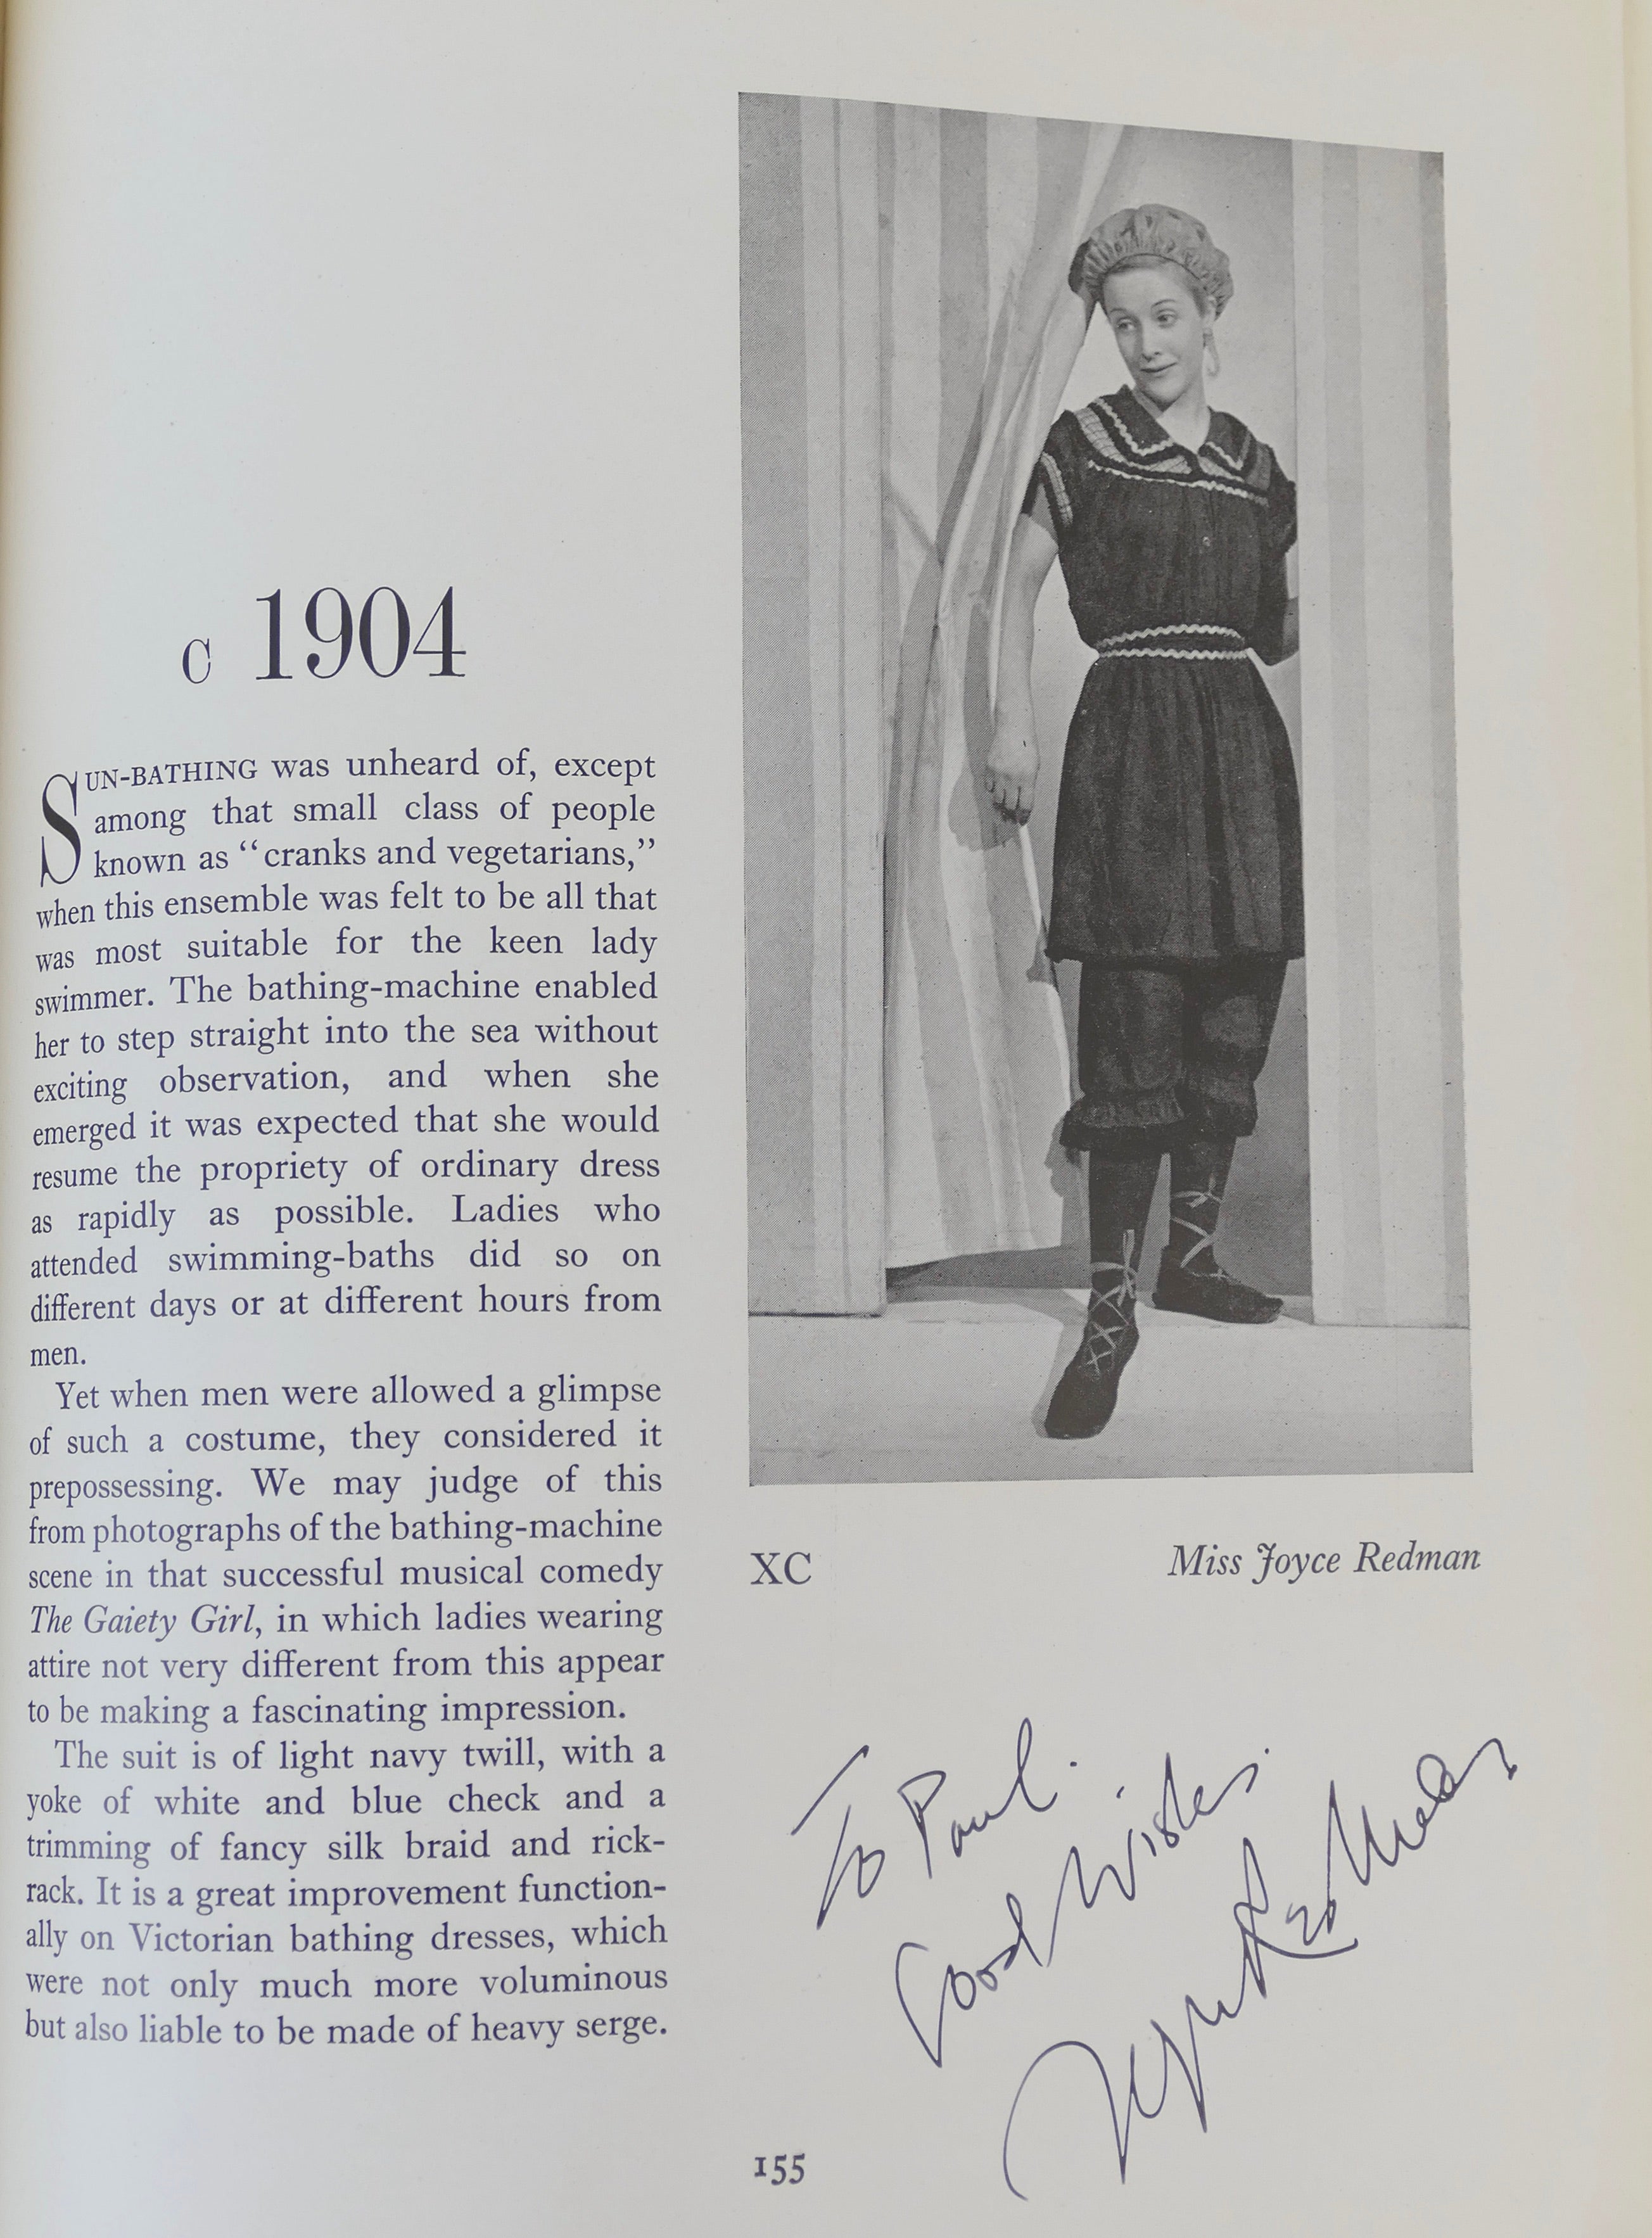 c 1904
SUN-BATHING was unheard of, except
among that small class of people
known as “cranks and vegetarians,”
when this ensemble was felt to be all that
was most suitable for the keen lady
swimmer. The bathing-machine enabled
her to step straight into the sea without
exciting observation, and when she
emerged it was expected that she would
resume the propriety of ordinary dress
as rapidly as possible. Ladies who
attended swimming-baths did so on
different days or at different hours from
men.
Yet when men were allowed a glimpse
of such a costume, they considered it
prepossessing. We may judge of this
from photographs of the bathing-machine
scene in that successful musical comedy
The Gaiety Girl, in which ladies wearing
attire not very different from this appear
to be making a fascinating impression.
The suit is of light navy twill, with a
yoke of white and blue check and a
trimming of fancy silk braid and rick-
rack. It is a great improvement function-
ally on Victorian bathing dresses, which
were not only much more voluminous
but also liable to be made of heavy serge.
XC
Miss Joyce Redman
To Paul.
Good Wishes.
Joyce Redman
155